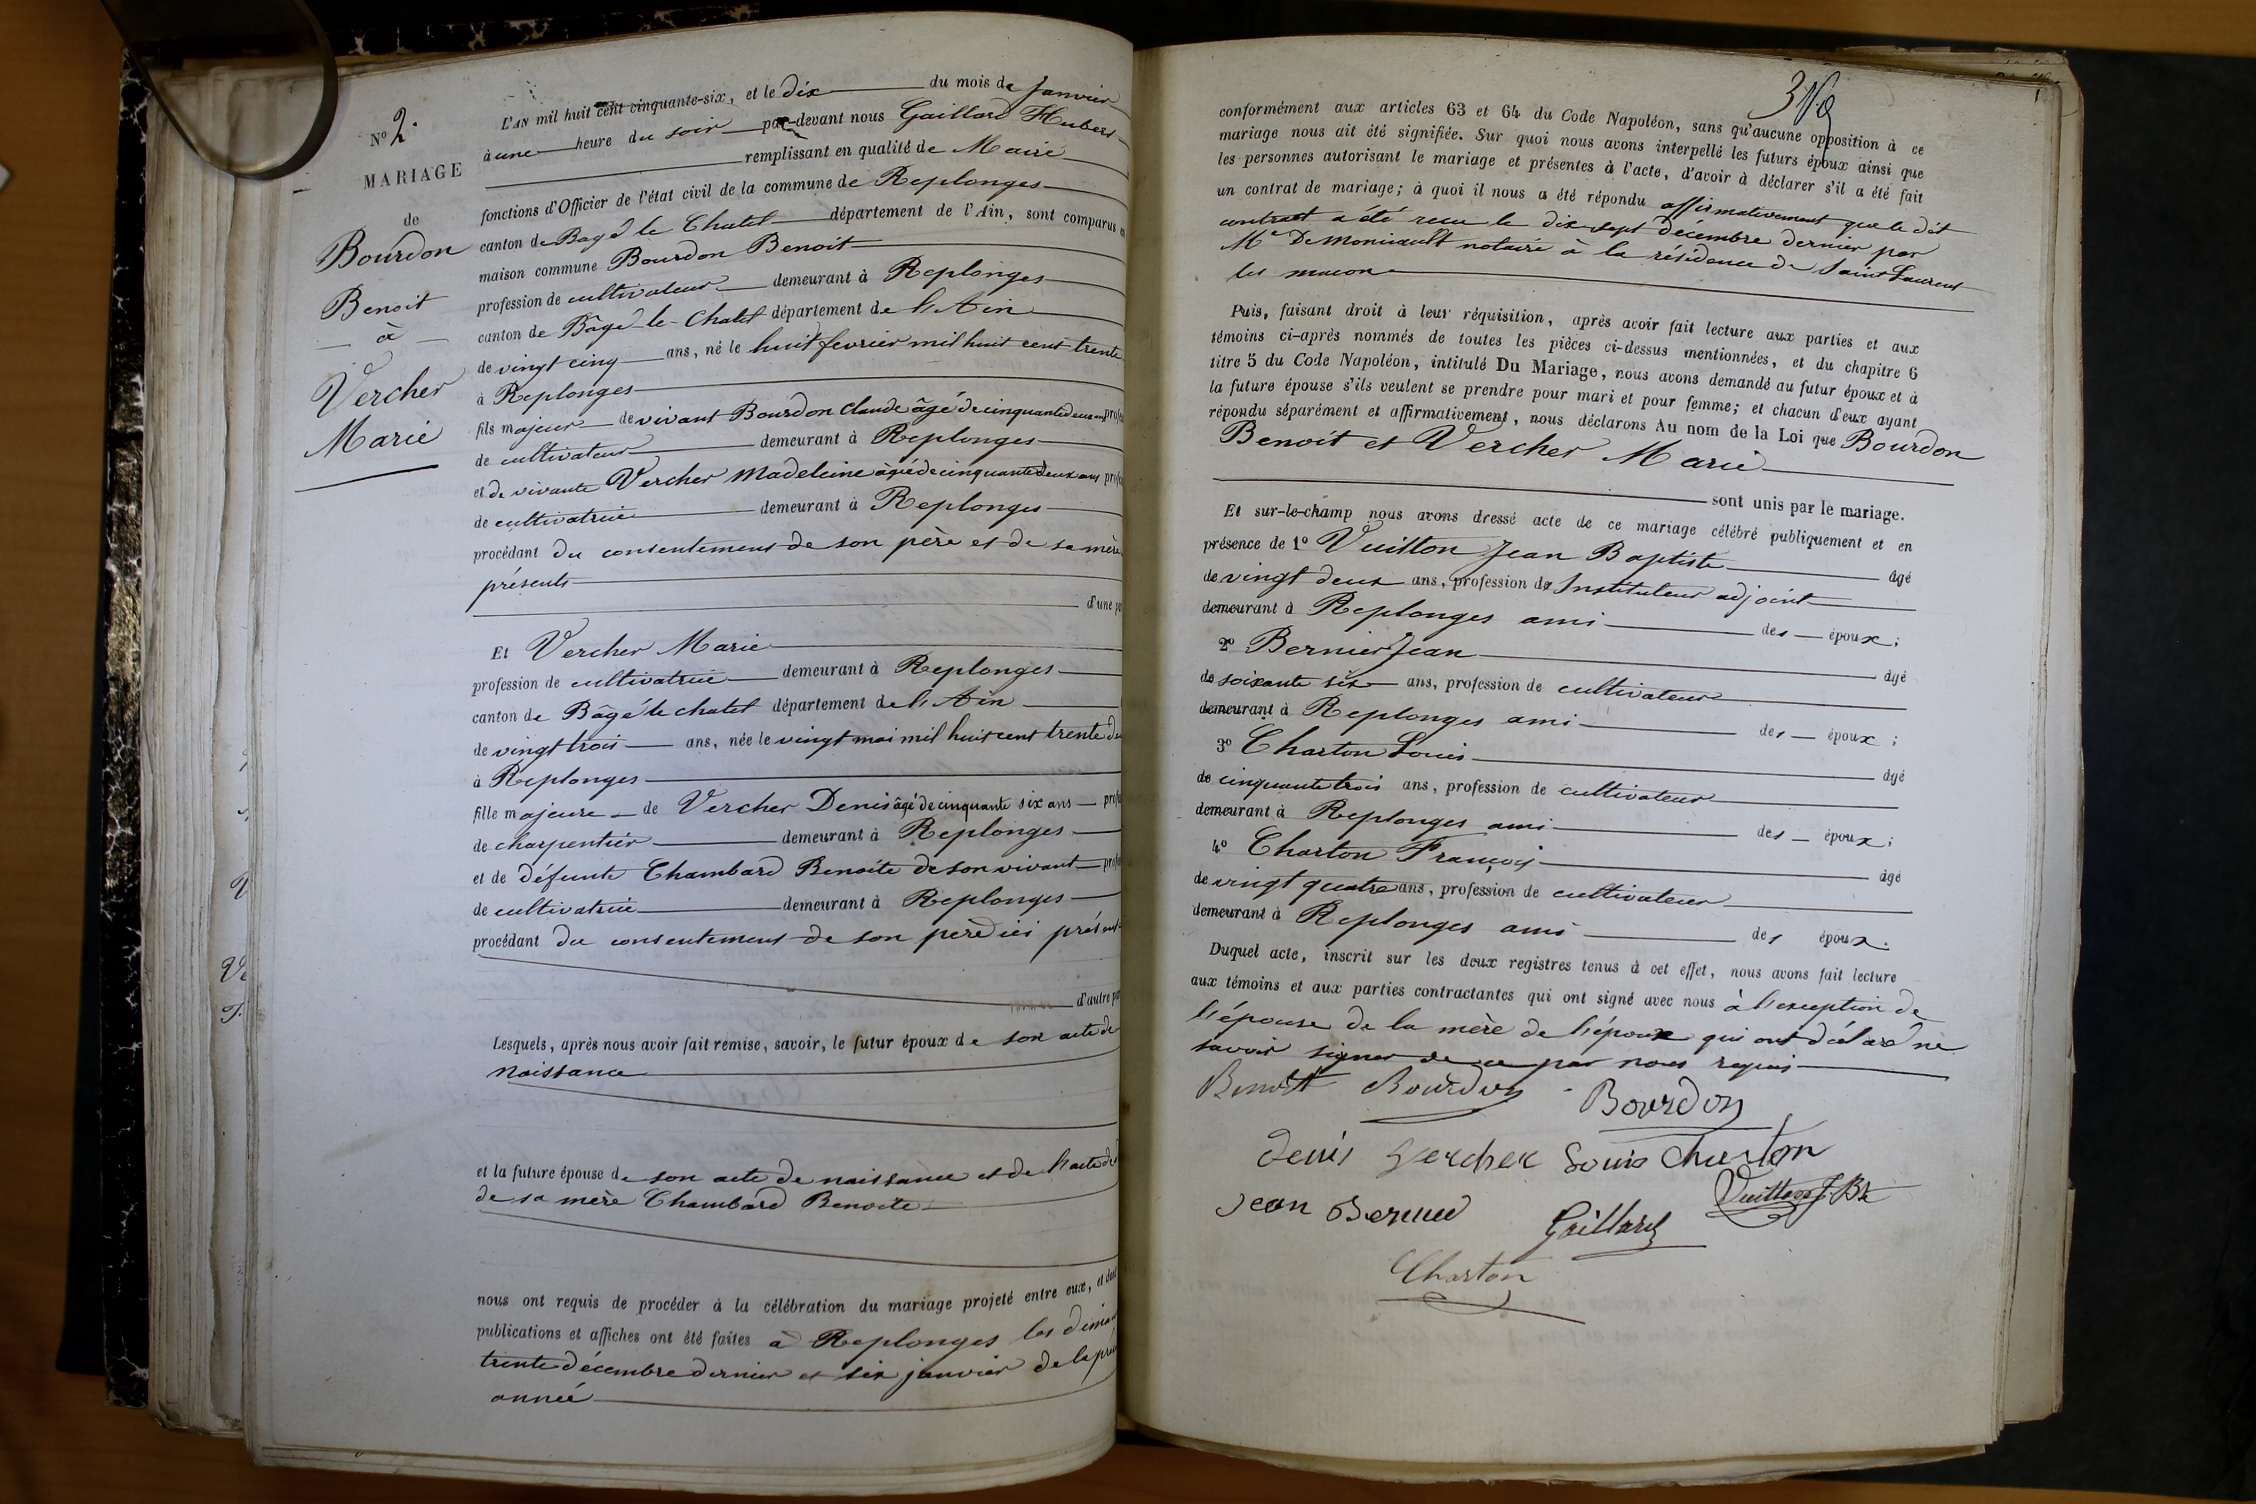 N° 2.
MARIAGE
de
Bourdon
Benoit
— à —
Vercher
Marie
L'AN mil huit cent cinquante-six, et le dix du mois de Janvier
à une heure du soir par-devant nous Gaillard Hubert
remplissant en qualité de Maire
fonctions d'Officier de l'état civil de la commune de Replonges
canton de Bagé le Chatel département de l'Ain, sont comparus en
maison commune Bourdon Benoit
profession de cultivateur demeurant à Replonges
canton de Bâgé-le-Chatel département de l'Ain
de vingt cinq ans, né le huit fevrier mil huit cent trente
à Replonges
fils majeur de vivant Bourdon Claude âgé de cinquante deux ans
de cultivateur demeurant à Replonges
et de vivante Vercher Madeleine âgée de cinquante deux ans
de cultivatrice demeurant à Replonges
procédant du consentement de son père et de sa mère
présents
d'une
Et Vercher Marie
profession de cultivatrice demeurant à Replonges
canton de Bâgé le chatel département de l'Ain
de vingt trois ans, née le vingt mai mil huit cent trente
à Replonges
fille majeure de Vercher Denis âgé de cinquante six ans
de charpentier demeurant à Replonges
et de défunte Chambard Benoite de son vivant
de cultivatrice demeurant à Replonges
procédant du consentement de son père ici présent
d'autre
Lesquels, après nous avoir fait remise, savoir, le futur époux de son acte de
naissance
et la future épouse de son acte de naissance et de l'acte de
de sa mère Chambard Benoite
nous ont requis de procéder à la célébration du mariage projeté entre eux, et dont
publications et affiches ont été faites à Replonges les
trente décembre dernier et six janvier de la
année
conformément aux articles 63 et 64 du Code Napoléon, sans qu'aucune opposition à ce
mariage nous ait été signifiée. Sur quoi nous avons interpellé les futurs époux ainsi que
les personnes autorisant le mariage et présentes à l'acte, d'avoir à déclarer s'il a été fait
un contrat de mariage; à quoi il nous a été répondu affirmativement que le dit
contrat a été recu le dix sept décembre dernier par
Me notaire à la résidence de Saint Laurent
les macon
Puis, faisant droit à leur réquisition, après avoir fait lecture aux parties et aux
témoins ci-après nommés de toutes les pièces ci-dessus mentionnées, et du chapitre 6
titre 5 du Code Napoléon, intitulé Du Mariage, nous avons demandé au futur époux et à
la future épouse s'ils veulent se prendre pour mari et pour femme; et chacun d'eux ayant
répondu séparément et affirmativement, nous déclarons Au nom de la Loi que Bourdon
Benoit et Vercher Marie
sont unis par le mariage.
Et sur-le-champ nous avons dressé acte de ce mariage célébré publiquement et en
présence de 1° Vuitton Jean Baptiste âgé
de vingt deux ans, profession de Instituteur adjoint
demeurant à Replonges ami des époux;
2° Bernier Jean âgé
de soixante six ans, profession de cultivateur
demeurant à Replonges ami des époux;
3° Charton Louis âgé
de cinquante trois ans, profession de cultivateur
demeurant à Replonges ami des époux;
4° Charton François âgé
de vingt quatre ans, profession de cultivateur
demeurant à Replonges ami des époux.
Duquel acte, inscrit sur les deux registres tenus à cet effet, nous avons fait lecture
aux témoins et aux parties contractantes qui ont signé avec nous à l'exception de
l'épouse de la mère de l'époux qui ont déclaré ne
savoir signer de ce par nous requis
Benoit Bourdon Bourdon
denis vercher Louis Charton
Jean Vuitton J. Bte
Gaillard
Charton